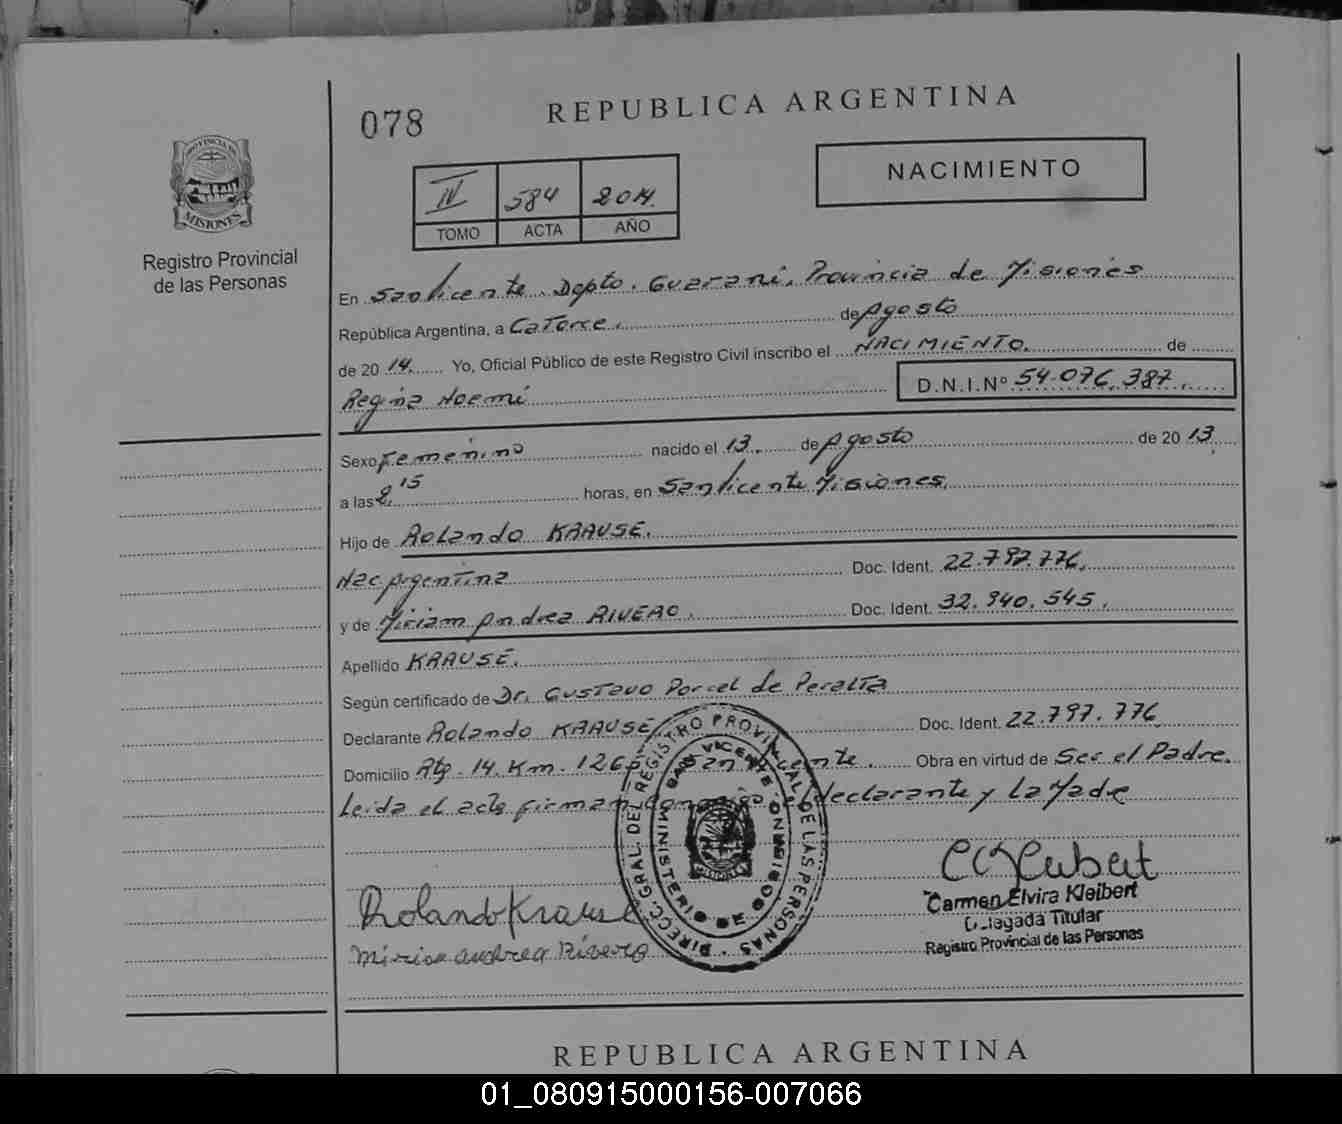 078
REPUBLICA ARGENTINA
PROVINCIA DE
MISIONES
Registro Provincial
de las Personas
NACIMIENTO
IV 584 2014.
TOMO ACTA AÑO
En San Vicente. Depto. Guaraní, Provincia de Misiones
República Argentina, a Catorce. de Agosto
de 20 14. Yo, Oficial Público de este Registro Civil inscribo el NACIMIENTO. de
Regina Noemí D.N.I.Nº 54.076.387.
Sexo Femenino nacido el 13. de Agosto de 20 13.
a las 8,15 horas, en San Vicente Misiones.
Hijo de Rolando KRAUSE.
Nac Argentina Doc. Ident. 22.797.776.
y de Miriam Andrea RIVERO. Doc. Ident. 32.940.545.
Apellido KRAUSE.
Según certificado de Dr. Gustavo Porcel de Peralta
Declarante Rolando KRAUSE, Doc. Ident. 22.797.776
Domicilio Rta. 14. Km. 1265 San Vicente. Obra en virtud de Ser el Padre.
Leida el acta firman conmigo el declarante y La Madre
DIRECC. GRAL. DEL REGISTRO PROVINCIAL DE LAS PERSONAS
MINISTERIO DE GOBIERNO
SAN VICENTE
MISIONES
Rolando Krause
Miriam andrea Rivero
Carmen Elvira Kleibert
Delegada Titular
Registro Provincial de las Personas
REPUBLICA ARGENTINA
01_080915000156-007066